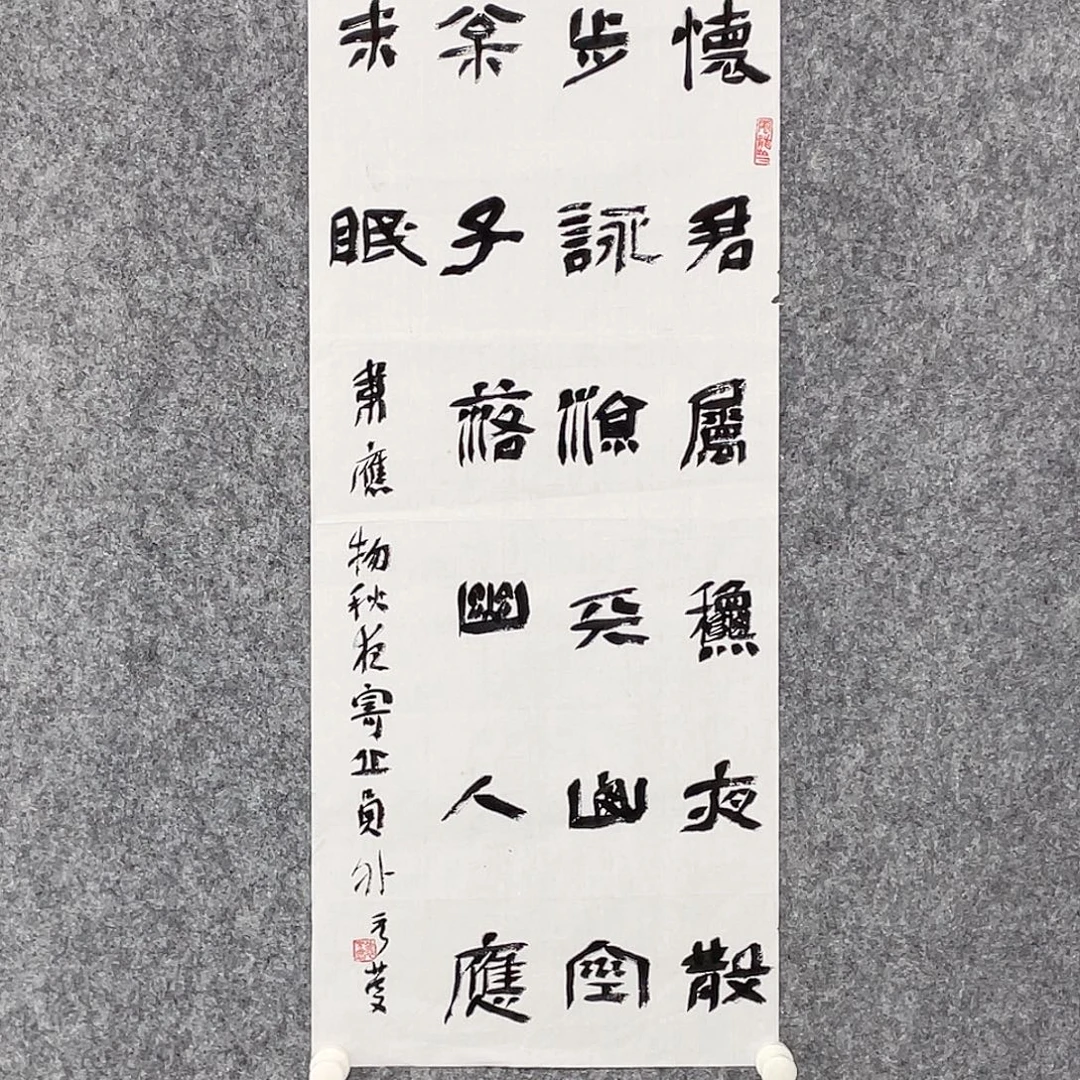 懷君屬龝夜散
步詠涼天山空
枀子落幽人應
未眠
韋應物秋夜寄丘員外